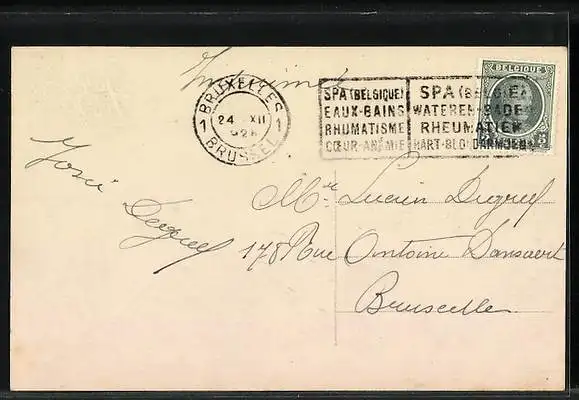 Imprimé
BRUXELLES
1 24 XII 1
BRUSSEL
SPA (BELGIQUE)
EAUX-BAINS
RHUMATISME
CŒUR-ANÉMIE
SPA (BELGIE)
WATEREN-BADEN
RHEUMATIEK
HART-BLOEDARMOEDE
BELGIQUE
José
Mr Lucien
178 Rue Antoine Dansaert
Bruxelles